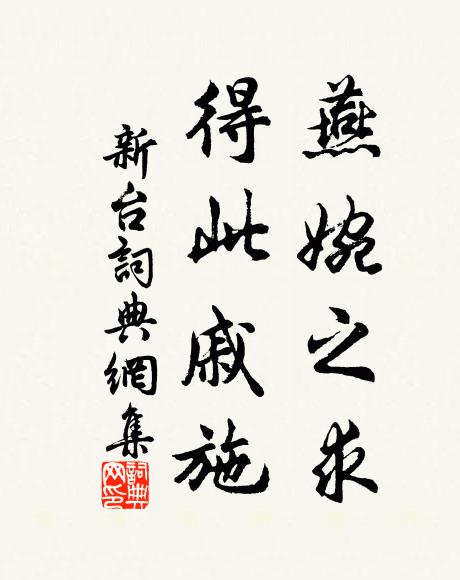 燕婉之求
得此戚施
新台詞典網集
詞典网印